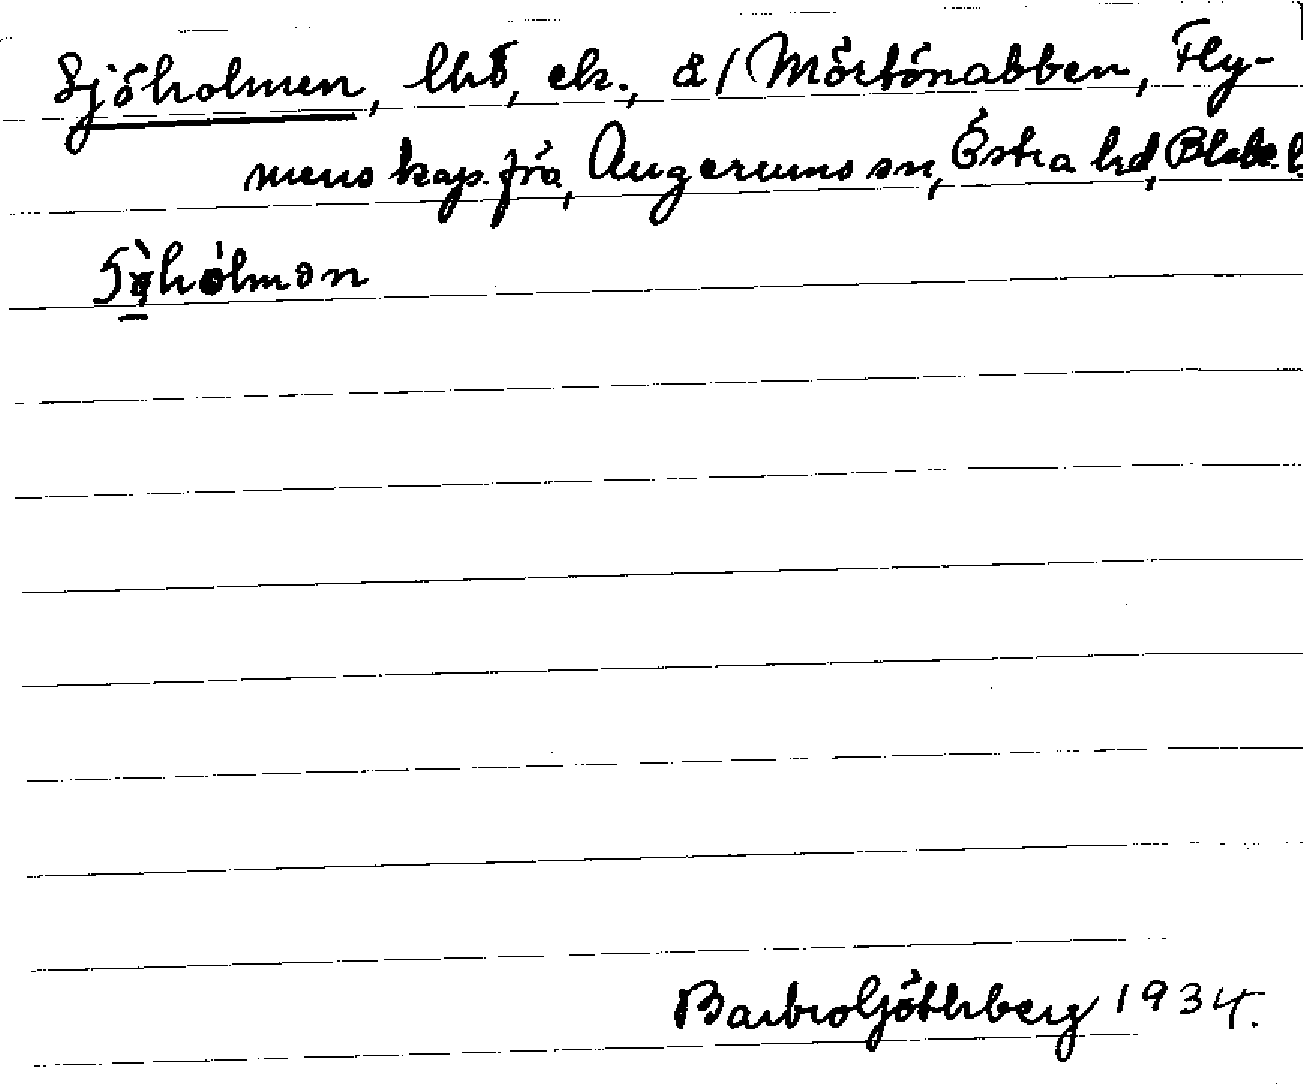 Sjöholmen, lht, ek., å/ Mörtönabben, Fly-
mens kap. frs, Augerums sn, Östra hd, Blek. l
Barbro Götherberg 1934.